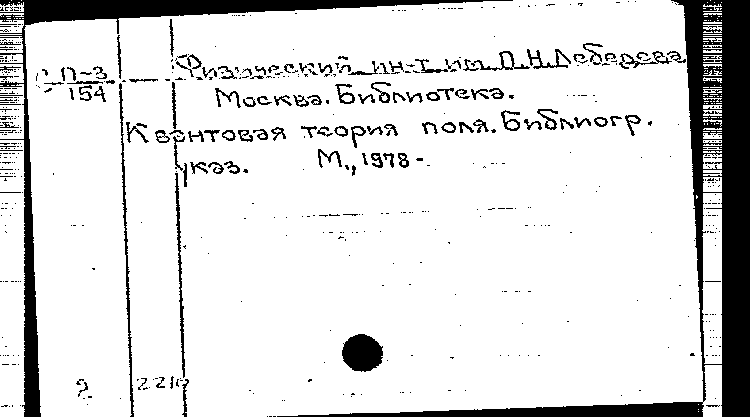 С П-3
154
Физический ин-т им. П.Н.Лебедева
Москва. Библиотека.
Квантовая теория поля. Библиогр.
указ. М., 1978-.
2